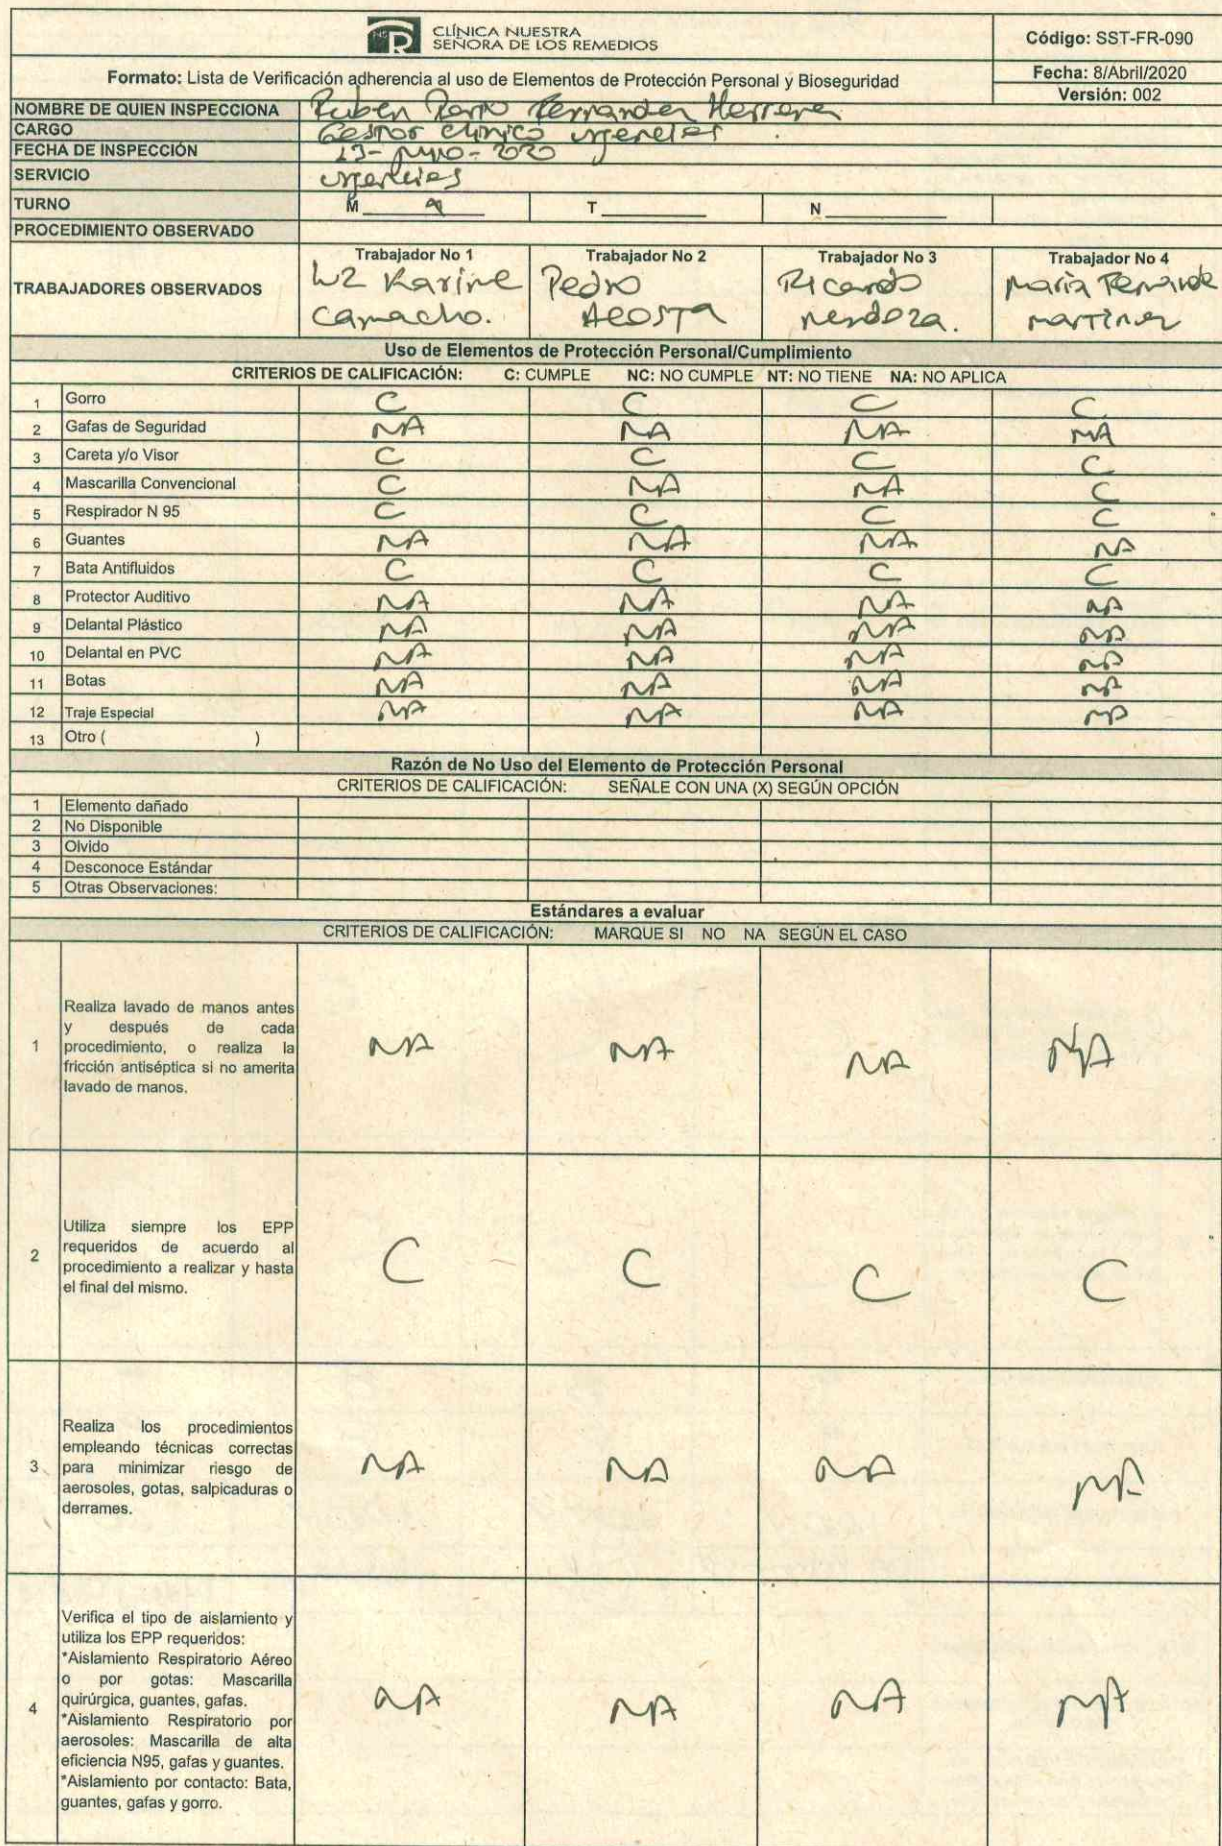 CLÍNICA NUESTRA
SEÑORA DE LOS REMEDIOS
Código: SST-FR-090
Formato: Lista de Verificación adherencia al uso de Elementos de Protección Personal y Bioseguridad
Fecha: 8/Abril/2020
Versión: 002
NOMBRE DE QUIEN INSPECCIONA Ruben Fernandez Herrera
CARGO Gestor clinico urgencias
FECHA DE INSPECCIÓN 2020
SERVICIO urgencias
TURNO M T N
PROCEDIMIENTO OBSERVADO
TRABAJADORES OBSERVADOS
Trabajador No 1 Trabajador No 2 Trabajador No 3 Trabajador No 4
Luz Karine Pedro Ricardo María Fernanda
Camacho. Acosta Mendoza. Martinez
Uso de Elementos de Protección Personal/Cumplimiento
CRITERIOS DE CALIFICACIÓN: C: CUMPLE NC: NO CUMPLE NT: NO TIENE NA: NO APLICA
1 Gorro C C C C
2 Gafas de Seguridad NA NA NA NA
3 Careta y/o Visor C C C C
4 Mascarilla Convencional C NA NA C
5 Respirador N 95 C C C C
6 Guantes NA NA NA NA
7 Bata Antifluidos C C C C
8 Protector Auditivo NA NA NA NA
9 Delantal Plástico NA NA NA NA
10 Delantal en PVC NA NA NA NA
11 Botas NA NA NA NA
12 Traje Especial NA NA NA NA
13 Otro ( )
Razón de No Uso del Elemento de Protección Personal
CRITERIOS DE CALIFICACIÓN: SEÑALE CON UNA (X) SEGÚN OPCIÓN
1 Elemento dañado
2 No Disponible
3 Olvido
4 Desconoce Estándar
5 Otras Observaciones:
Estándares a evaluar
CRITERIOS DE CALIFICACIÓN: MARQUE SI NO NA SEGÚN EL CASO
1
Realiza lavado de manos antes
y después de cada
procedimiento, o realiza la
fricción antiséptica si no amerita
lavado de manos.
NA NA NA NA
2
Utiliza siempre los EPP
requeridos de acuerdo al
procedimiento a realizar y hasta
el final del mismo.
C C C C
3
Realiza los procedimientos
empleando técnicas correctas
para minimizar riesgo de
aerosoles, gotas, salpicaduras o
derrames.
NA NA NA NA
4
Verifica el tipo de aislamiento y
utiliza los EPP requeridos:
*Aislamiento Respiratorio Aéreo
o por gotas: Mascarilla
quirúrgica, guantes, gafas.
*Aislamiento Respiratorio por
aerosoles: Mascarilla de alta
eficiencia N95, gafas y guantes.
*Aislamiento por contacto: Bata,
guantes, gafas y gorro.
NA NA NA NA